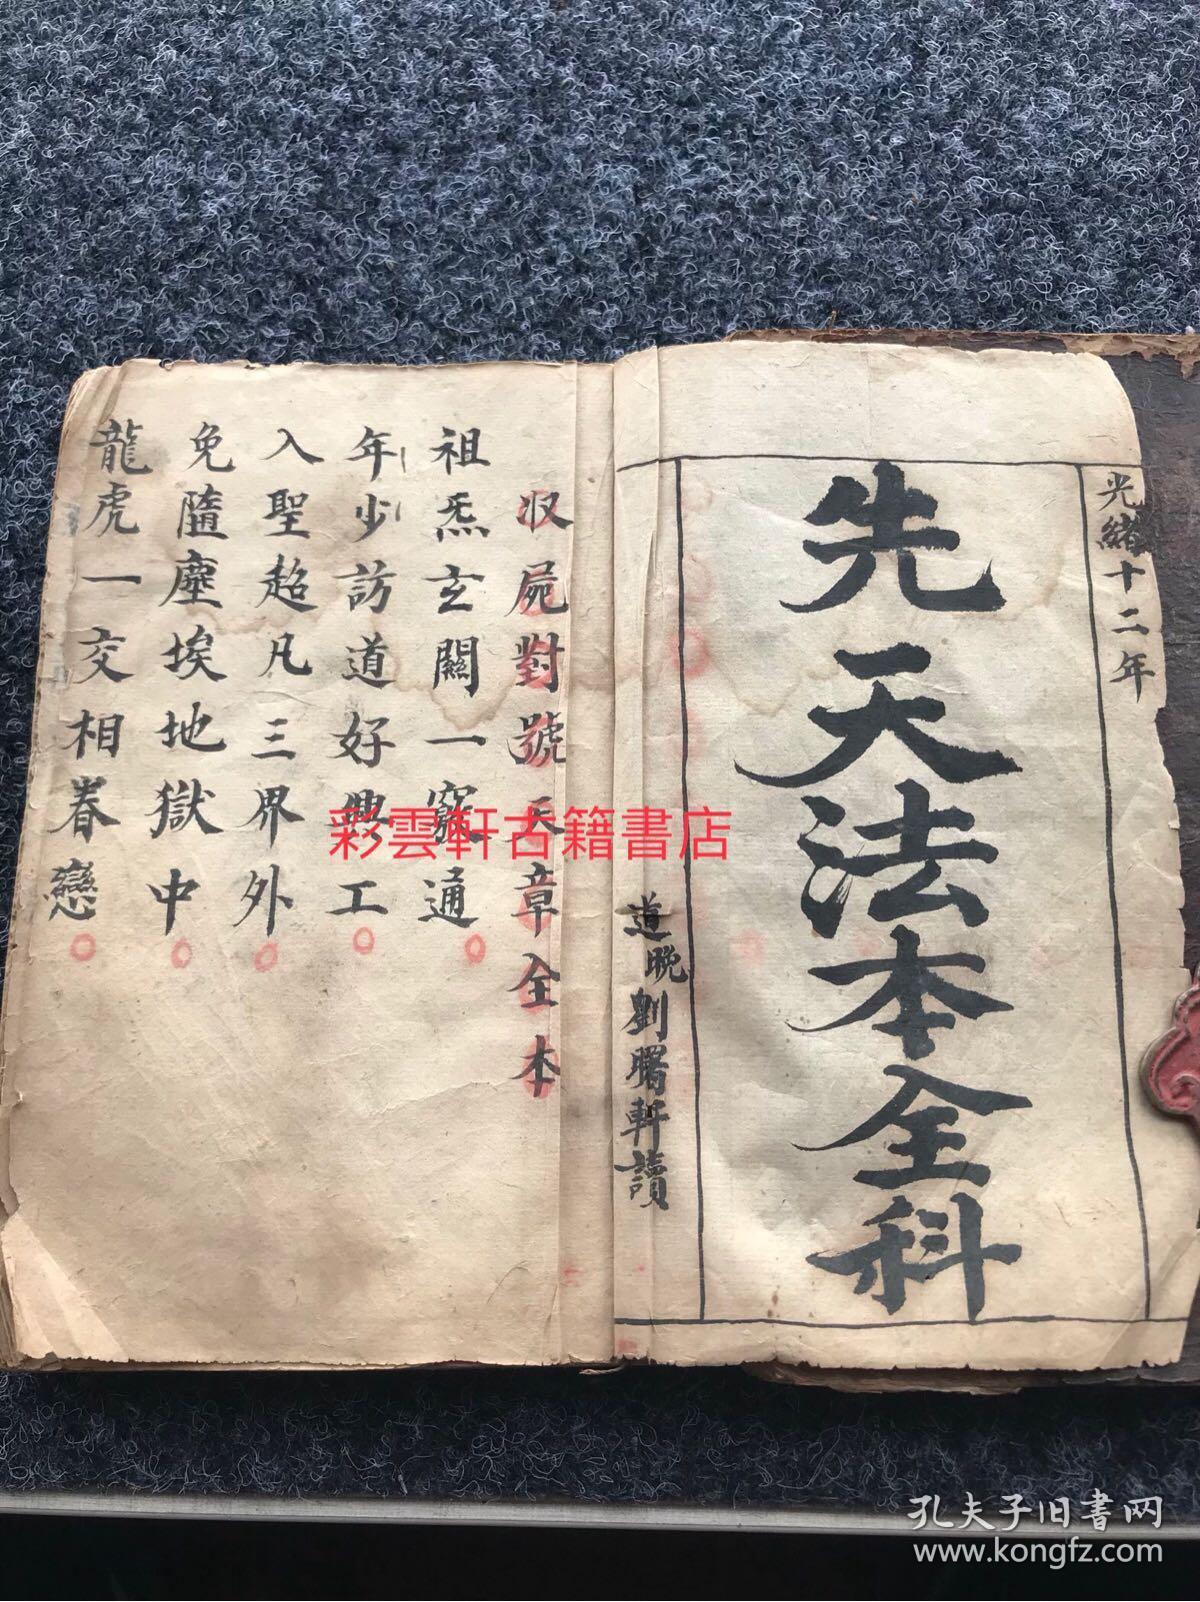 光緒十二年
先天法本全科
道晚劉曙軒讀
収屍對號天章全本
祖炁玄關一竅通
年少訪道好興工
入聖超凡三界外
免隨塵埃地獄中
龍虎一交相眷戀
彩雲軒古籍書店
孔夫子旧书网
www.kongfz.com